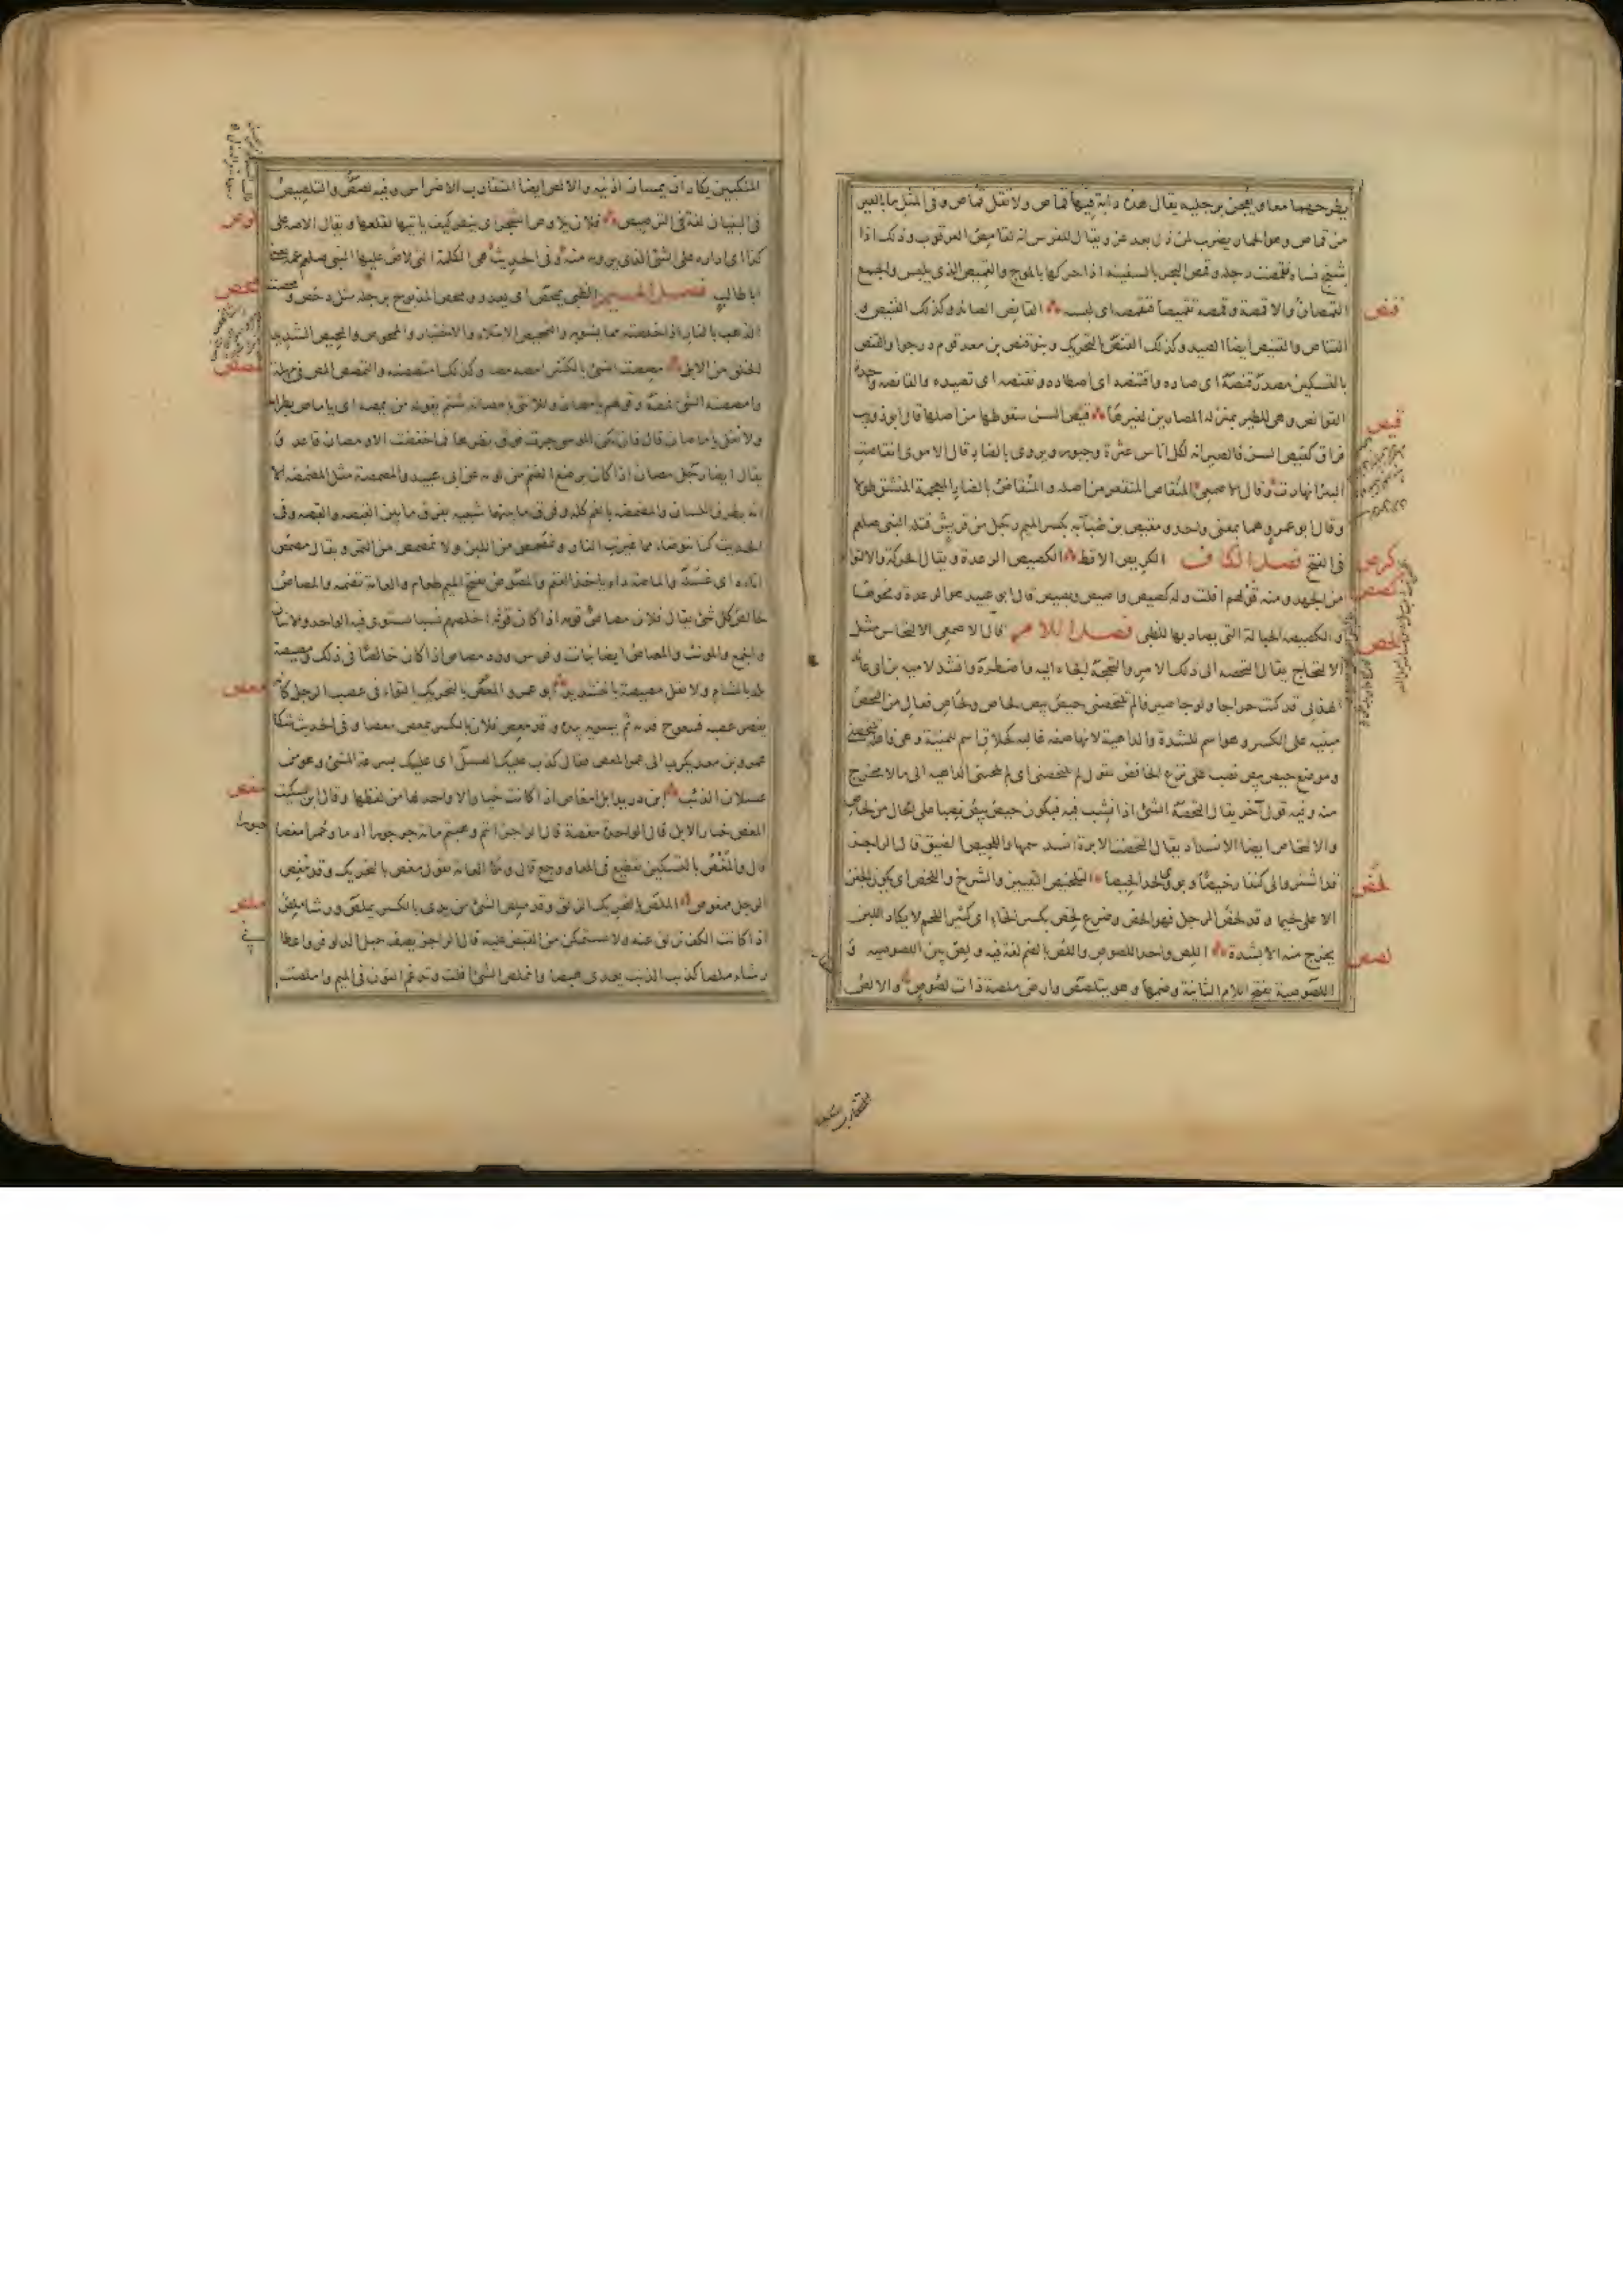 يطرحهما معا ويعجن برجليه يقال هذه دابة فيها قماص ولا تقل قماص وفى المثل ما بالعير
من قماص وهو الحمار يضرب لمن ذل بعد عز ويقال للفرس انه لقامص العرقوب وذلك اذا
شنج نساه فقمصت رجله وقمص البحر بالسفينة اذا حركها بالموج والقميص الذى يلبس والجمع
القمصان والاقمصة وقمصه تقميصا فتقمصه اى لبسه القانص الصائد وكذلك القنيص و
القناص والقنيص ايضا الصيد وكذلك القنص بالتحريك وبنو قنص بن معد قوم درجوا والقنص
بالتسكين مصدر قنصه اى صاده واقتنصه اى اصطاده وتقنصه اى تصيده والقانصة واحدة
القوانص وهى للطير بمنزلة المصارين لغيرها قيص السن سقوطها من اصلها قال ابو ذويب
فراق كقيص السن فالصبر انه لكل اناس عثرة وجبور ويروى بالضاد قال الاموى انقاصت
البئر انهارت وقال الاصمعى المنقاص المنقعر من اصله والمنقاض بالضاد المعجمة المنشق طولا
وقال ابو عمرو هما بمعنى واحد ومقيص بن ضبابة بكسر الميم رجل من قريش قتله النبى صلعم
فى الفتح فصل الكاف الكريص الاقط الكصيص الرعدة ويقال الحركة والالتوا
من الجهد ومنه قولهم افلت وله كصيص واصيص وبصيص قال ابو عبيد هو الرعدة ونحوها
والكصيصة الحبالة التى يصاد بها الظبى فصل اللام قال الاصمعى الالتحاص مثل
الالتحاج يقال التحصه الى ذلك الامر والتحجه الجاءه اليه واضطره وانشد لامية بن ابى عائذ
الهذلى قد كنت خراجا ولوجا صيرفا لم تلتحصنى حيص بيص لحاص ولحاص فعال من التحص
مبنية على الكسر وهو اسم للشدة والداهية لانها صفة غالبة كحلاق اسم للمنية وهى فاعلة تلتحصنى
وموضع حيص بيص نصب على نزع الخافض يقول لم تلتحصنى اى لم تلجئنى الداهية الى ما لا مخرج
منه وفيه قول آخر يقال التحصه الشئ اذا نشب فيه فيكون حيص بيص نصبا على الحال من لحاص
والالتحاص ايضا الانسداد يقال التحصت الابرة انسد سمها واللحيص الضيق قال الراجز
قد اشتروا لى كفنا رخيصا وبوؤنى لحدا لحيصا التلخيص التبيين والشرح واللخص ان يكون الجفن
الاعلى لحيما وقد لخص الرجل فهو الخص وضرع لخص بكسر الخاء اى كثير اللحم لا يكاد اللبن
يخرج منه الا بشدة اللص واحد اللصوص واللص بالضم لغة فيه ولص بين اللصوصية و
اللصوصية بفتح اللام الثانية وضمها وهو يتلصص وارض ملصة ذات لصوص والالص
قنص
قيص
كرص
كصص
لحص
لخص
لصص
المنكبين يكادان يمسان اذنيه والالص ايضا المتقارب الاضراس وفيه لصص والتلصيص
فى البنيان لغة فى الترصيص فلان يلاوص الشجر اى ينظر كيف ياتيها لقلعها ويقال الاصه على
كذا اى اداره على الشئ الذى يرومه منه وفى الحديث هى الكلمة التى الاص عليها النبى صلعم عمه
ابا طالب فصل الميم الظبى يمحص اى يعدو ومحص المذبوح برجله مثل دحص ومحصت
الذهب بالنار اذا خلصته مما يشوبه والتمحيص الابتلاء والاختبار والممحوص والمحيص الشديد
الخلق من الابل مصصت الشئ بالكسر امصه مصا وكذلك امتصصته والتمصص المص فى مهلة
وامصصته الشئ فمصه وقولهم يا مصان وللانثى يا مصانة شتم يقوله من يمصه اى يا ماص بظر امه
ولا تقل يا ماصان قال فان تكن الموسى جرت فوق بظرها فما ختنت الا ومصان قاعد و
يقال ايضا رجل مصان اذا كان يرضع الغنم من لومه عن ابى عبيد والمصمصة مثل المضمضة الا
انه بطرف اللسان والمضمضة بالفم كله وفرق ما بينهما شبيه بفرق ما بين القبصة والقبضة وفى
الحديث كنا نتوضأ مما غيرت النار ونمصمص من اللبن ولا نمصمص من التمر ويقال مصمص
اناءه اى غسله والماصة داء ياخذ الصبى والمصوص بفتح الميم طعام والعامة تضمه والمصاص
خالص كل شئ يقال فلان مصاص قومه اذا كان اخلصهم نسبا يستوى فيه الواحد والاثنان
والجمع والمونث والمصاص ايضا نبات وفرس ورد مصامص اذا كان خالصا فى ذلك ومصيصة
بلد بالشام ولا تقل مصيصة بالتشديد ابو عمرو المعص بالتحريك التواء فى عصب الرجل كانه
يقصر عصبه فيتعوج قدمه ثم يسويه بيده وقد معص فلان بالكسر يمعص معصا وفى الحديث شكا
عمرو بن معديكرب الى عمر المعص فقال كذب عليك العسل اى عليك بسرعة المشى وهو من
عسلان الذئب ابن دريد ابل امغاص اذا كانت خيارا لا واحد لها من لفظها وقال ابن سكيت
المغص خيار الابل قال الواحدة مغصة قال الراجز انتم وهبتم مائة جرجورا ادما وحمرا مغصا
قال والمغص بالتسكين تقطيع فى المعا ووجع قال والعامة تقول مغص بالتحريك وقد مغص
الرجل فهو ممغوص الملص بالتحريك الزلق وقد ملص الشئ من يدى بالكسر يملص ورشاء ملص
اذا كانت الكف تزلق عنه ولا تستمكن من القبض عليه قال الراجز يصف حبل الدلو فر واعطا
رشاء ملصا كذنب الذئب يعدى هبصا وانملص الشئ افلت وتدغم النون فى الميم واملصت
لوص
محص
مصص
معص
مغص
ملص